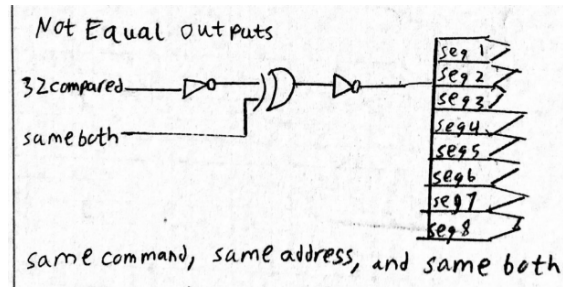 Not Equal outputs
32compared
same both
seg 1
seg 2
seg 3
seg4
seg5
seg6
seg7
seg8
same command, same address, and same both